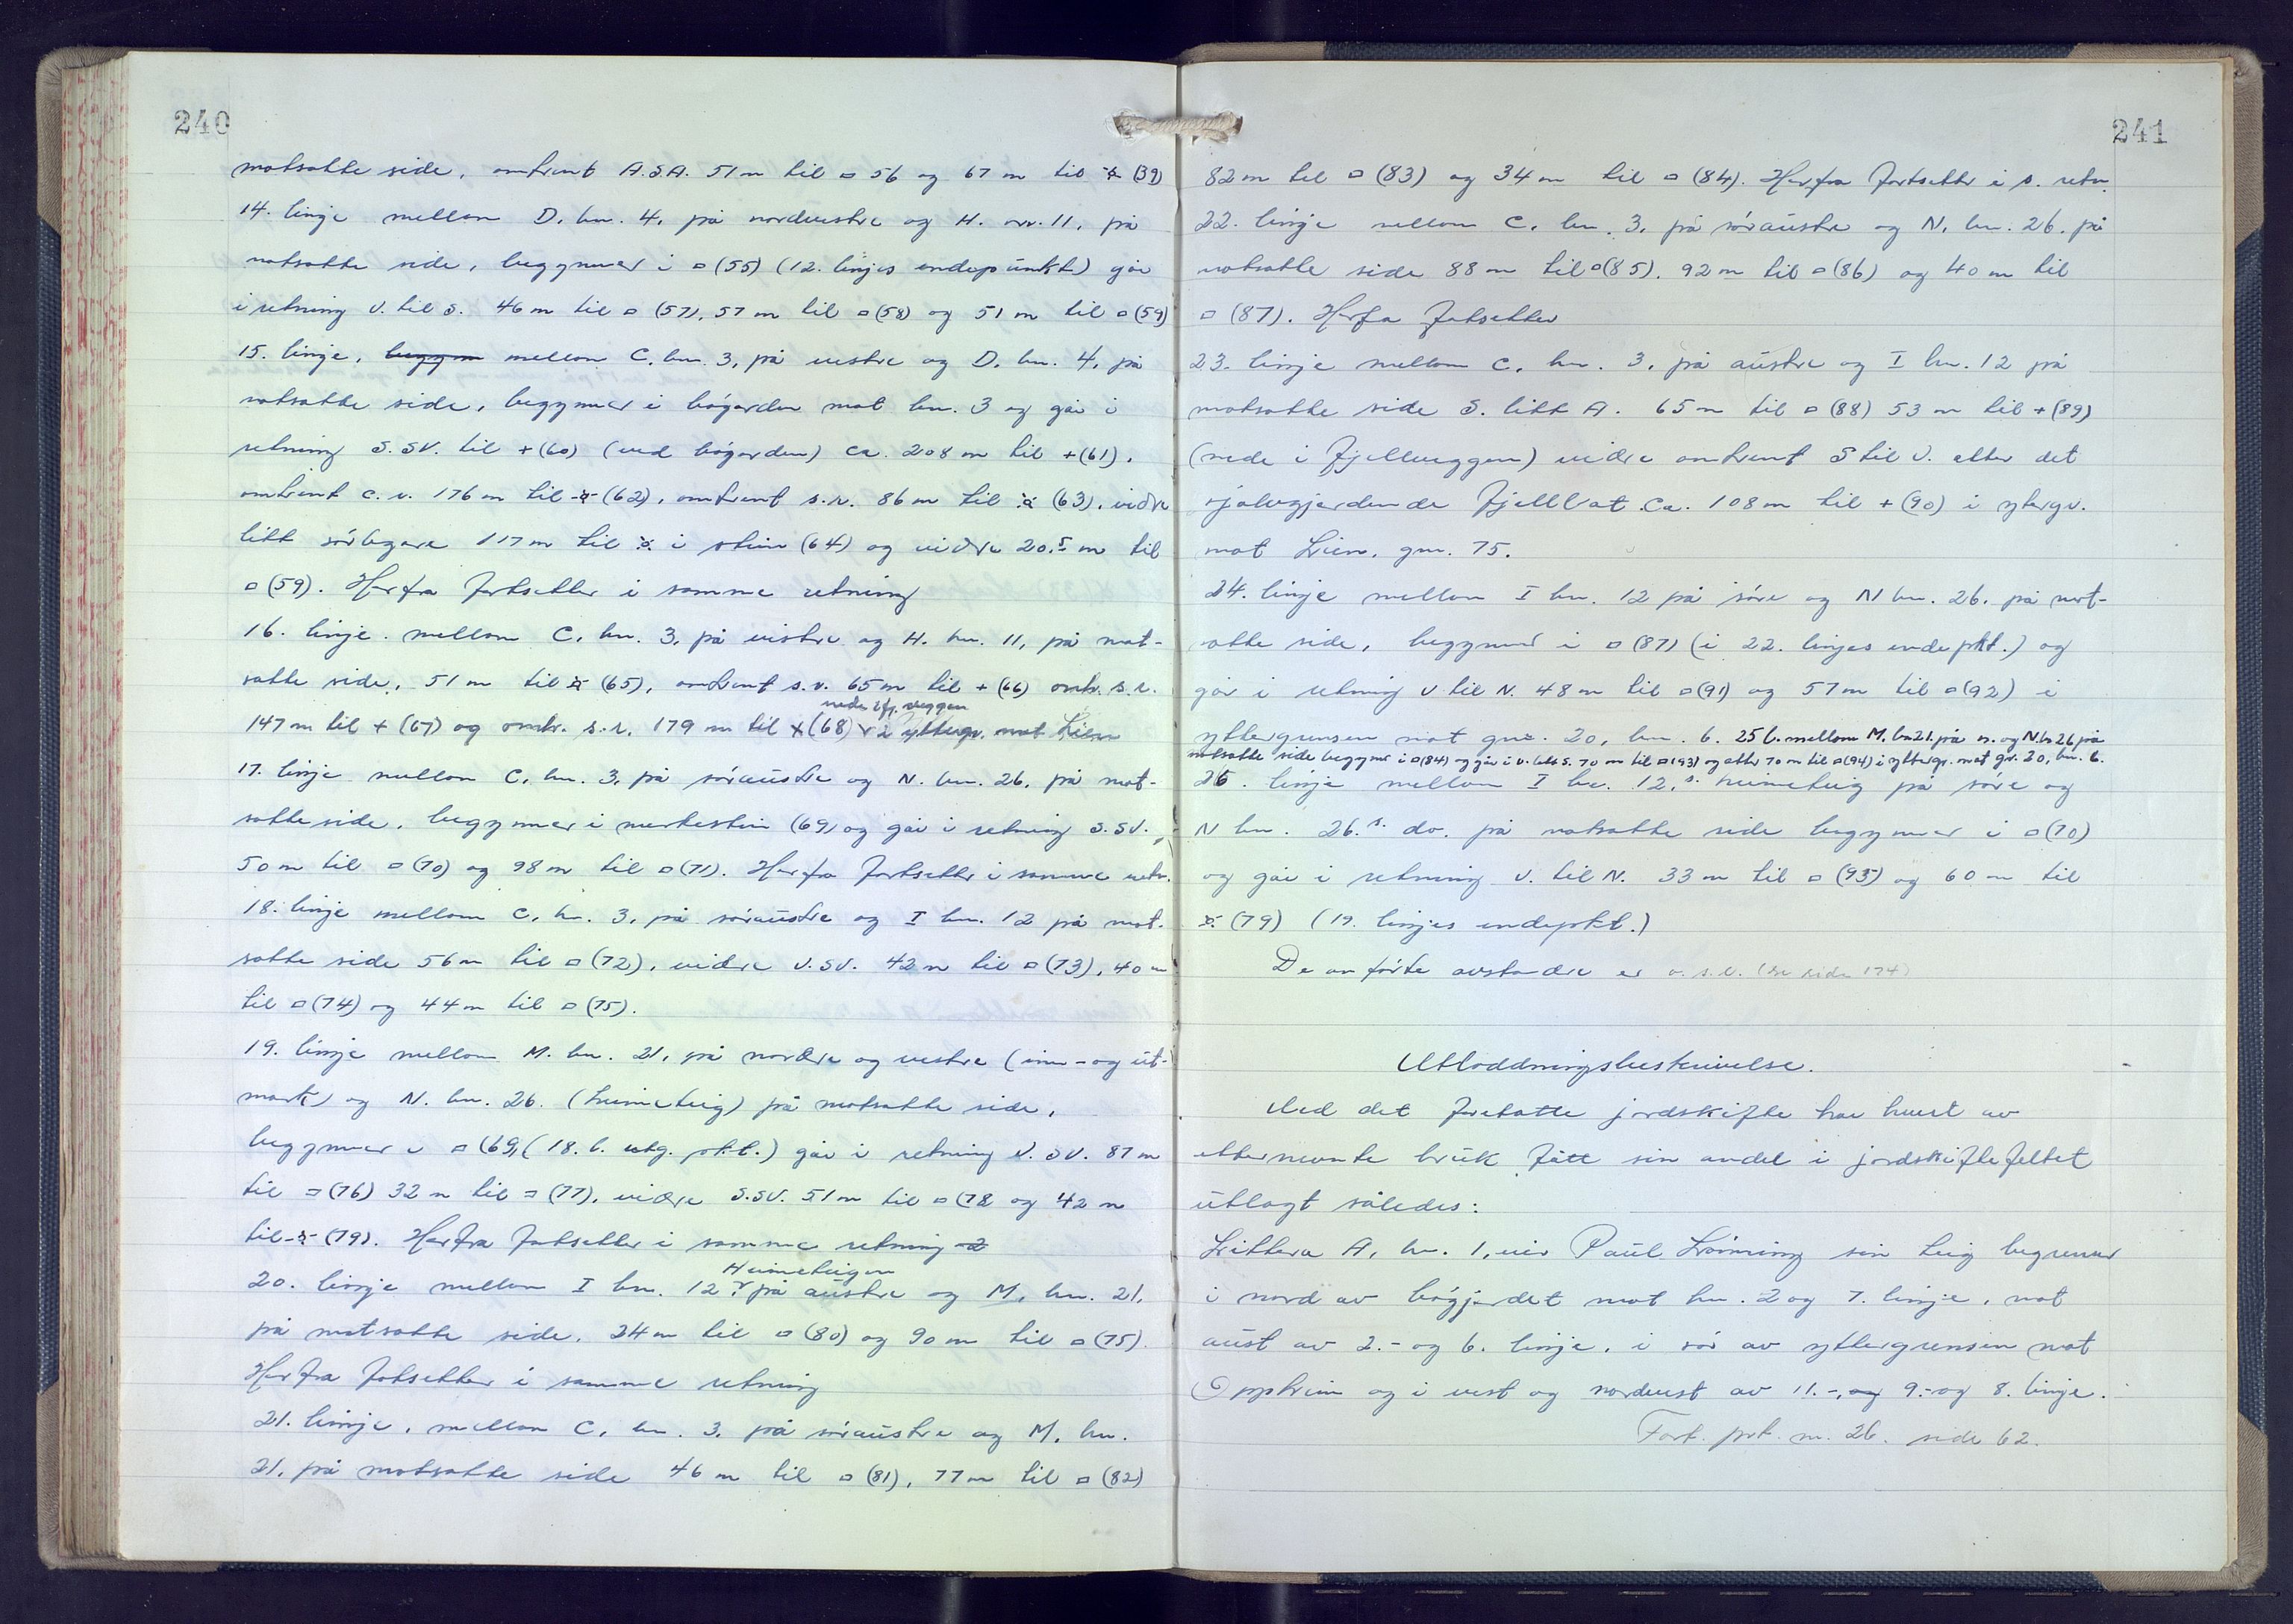 240
motsatte side, omtrent A.S.A. 51 m til □ 56 og 67 m til ☆ (39)
14. linje mellom D, bn. 4, på nordvestre og H. nr. 11, på
motsatte side, begynner i □ (55) (12. linjes endepunkt) går
i retning V. til S. 46 m til □ (57), 57 m til □ (58) og 51 m til □ (59)
15. linje, mellom C. bn. 3, på vestre og D. bn. 4, på
motsatte side, begynner i bøgarden mot bn. 3 og går i
retning S.SV. til + (60) (ved bøgarden) ca. 208 m til + (61),
omtrent s.r. 176 m til ☆ (62), omtrent s.r. 86 m til ☆ (63), vidre
litt sørlegare 117 m til ☆ i stein (64) og vidre 20.5 m til
□ (59). Herfra fortsetter i samme retning
16. linje mellom C, bn. 3, på vestre og H. bn. 11, på mot-
satte side, 51 m til ☆ (65), omtrent s.r. 65 m til + (66) omtr. s.r.
nede i fj. veggen
147 m til + (67) og omtr. s.r. 179 m til + (68) i yttergr. mot Lien
17. linje mellom C, bn. 3, på søraustre og N. bn. 26, på mot-
satte side, begynner i merkestein (69) og går i retning S.SV.
50 m til □ (70) og 98 m til □ (71). Herfra fortsetter i samme retn.
18. linje mellom C, bn. 3, på søraustre og I bn. 12 på mot-
satte side 56 m til □ (72), vidre V.SV. 42 m til □ (73), 40 m
til □ (74) og 44 m til □ (75).
19. linje mellom M. bn. 21, på nordre og vestre (inn- og ut-
mark) og N. bn. 26. (heimeteig) på motsatte side,
begynner i □ (69) (18. l. utg. pkt.) går i retning V.SV. 87 m
til □ (76) 32 m til □ (77), vidre S.SV. 51 m til □ (78 og 42 m
til ☆ (79). Herfra fortsetter i samme retning
Heimeteigen
20. linje mellom I bn. 12, på austre og M, bn. 21,
på motsatte side, 24 m til □ (80) og 90 m til □ (75).
Herfra fortsetter i samme retning
21. linje, mellom C, bn. 3, på søraustre og M, bn.
21, på motsatte side 46 m til □ (81), 77 m til □ (82)
241
82 m til □ (83) og 34 m til □ (84). Herfra fortsetter i s. retn.
22. linje mellom C, bn. 3, på søraustre og N, bn. 26. på
motsatte side 88 m til □ (85), 92 m til □ (86) og 40 m til
□ (87). Herfra fortsetter
23. linje mellom C, bn. 3, på austre og I bn. 12 på
motsatte side S. litt A. 65 m til □ (88) 53 m til + (89)
(nede i fjellveggen) vidre omtrent S til V. etter det
sjølvgjerdende fjellbat ca. 108 m til + (90) i ytergr.
mot Lien, gnr. 75.
24. linje mellom I bn. 12 på søre og N bn. 26, på mot-
satte side, begynner i □ (87) (i 22. linjes endepkt.) og
går i retning V til N. 48 m til □ (91) og 57 m til □ (92) i
yttergrensen mot gnr. 20, bn. 6. 25 l. mellom M. bn 21. på n. og N. bn 26 på
motsatte side begynner i □ (84) og går i V. litt S. 70 m til □ (93) og etter 70 m til □ (94) i yttergr. mot gnr. 20, bn. 6.
26. linje mellom I bn. 12,s heimeteig på søre og
N bn. 26.s do. på motsatte side begynner i □ (70)
og går i retning V. til N. 33 m til □ (95) og 60 m til
☆ (79) (19. linjes endepkt.)
De anførte avstandre er o.s.v. (se side 174)
Utloddningsbeskrivelse.
Ved det foretatte jordskifte har hvert av
etternevnte bruk fått sin andel i jordskiftefeltet
utlagt således:
Littera A, bn. 1, eier Paul Lønning sin teig begrenses
i nord av bøgjerdet mot bn. 2 og 7. linje, mot
aust av 2.- og 6. linje, i sør av yttergrensen mot
Oppheim og i vest og nordvest av 11.-, 9.- og 8. linje.
Fort. prt. nr. 26. side 62.